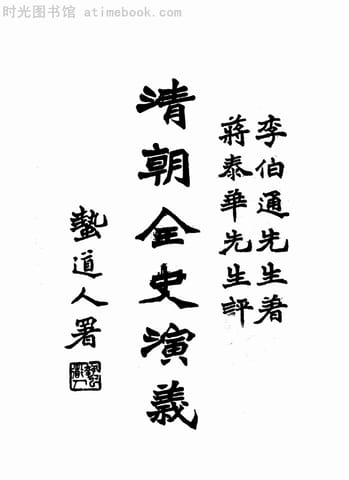 时光图书馆 atimebook.com
李伯通先生著
蔣泰華先生評
清朝全史演義
蟄道人署